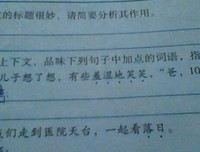 的标题很妙，请简要分析其作用。
上下文，品味下列句子中加点的词语，指
儿子想了想。有些羞涩地笑笑，“爸，10
们走到医院天台，一起看落日。